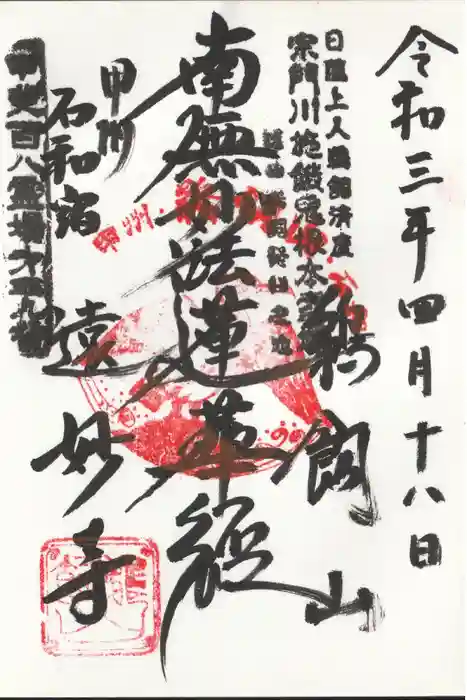 令和三年四月十八日
日蓮上人
宗門川施餓鬼根本
鵜飼山
南無妙法蓮華経
甲州
石和宿
遠妙寺
甲州
甲斐百八霊場